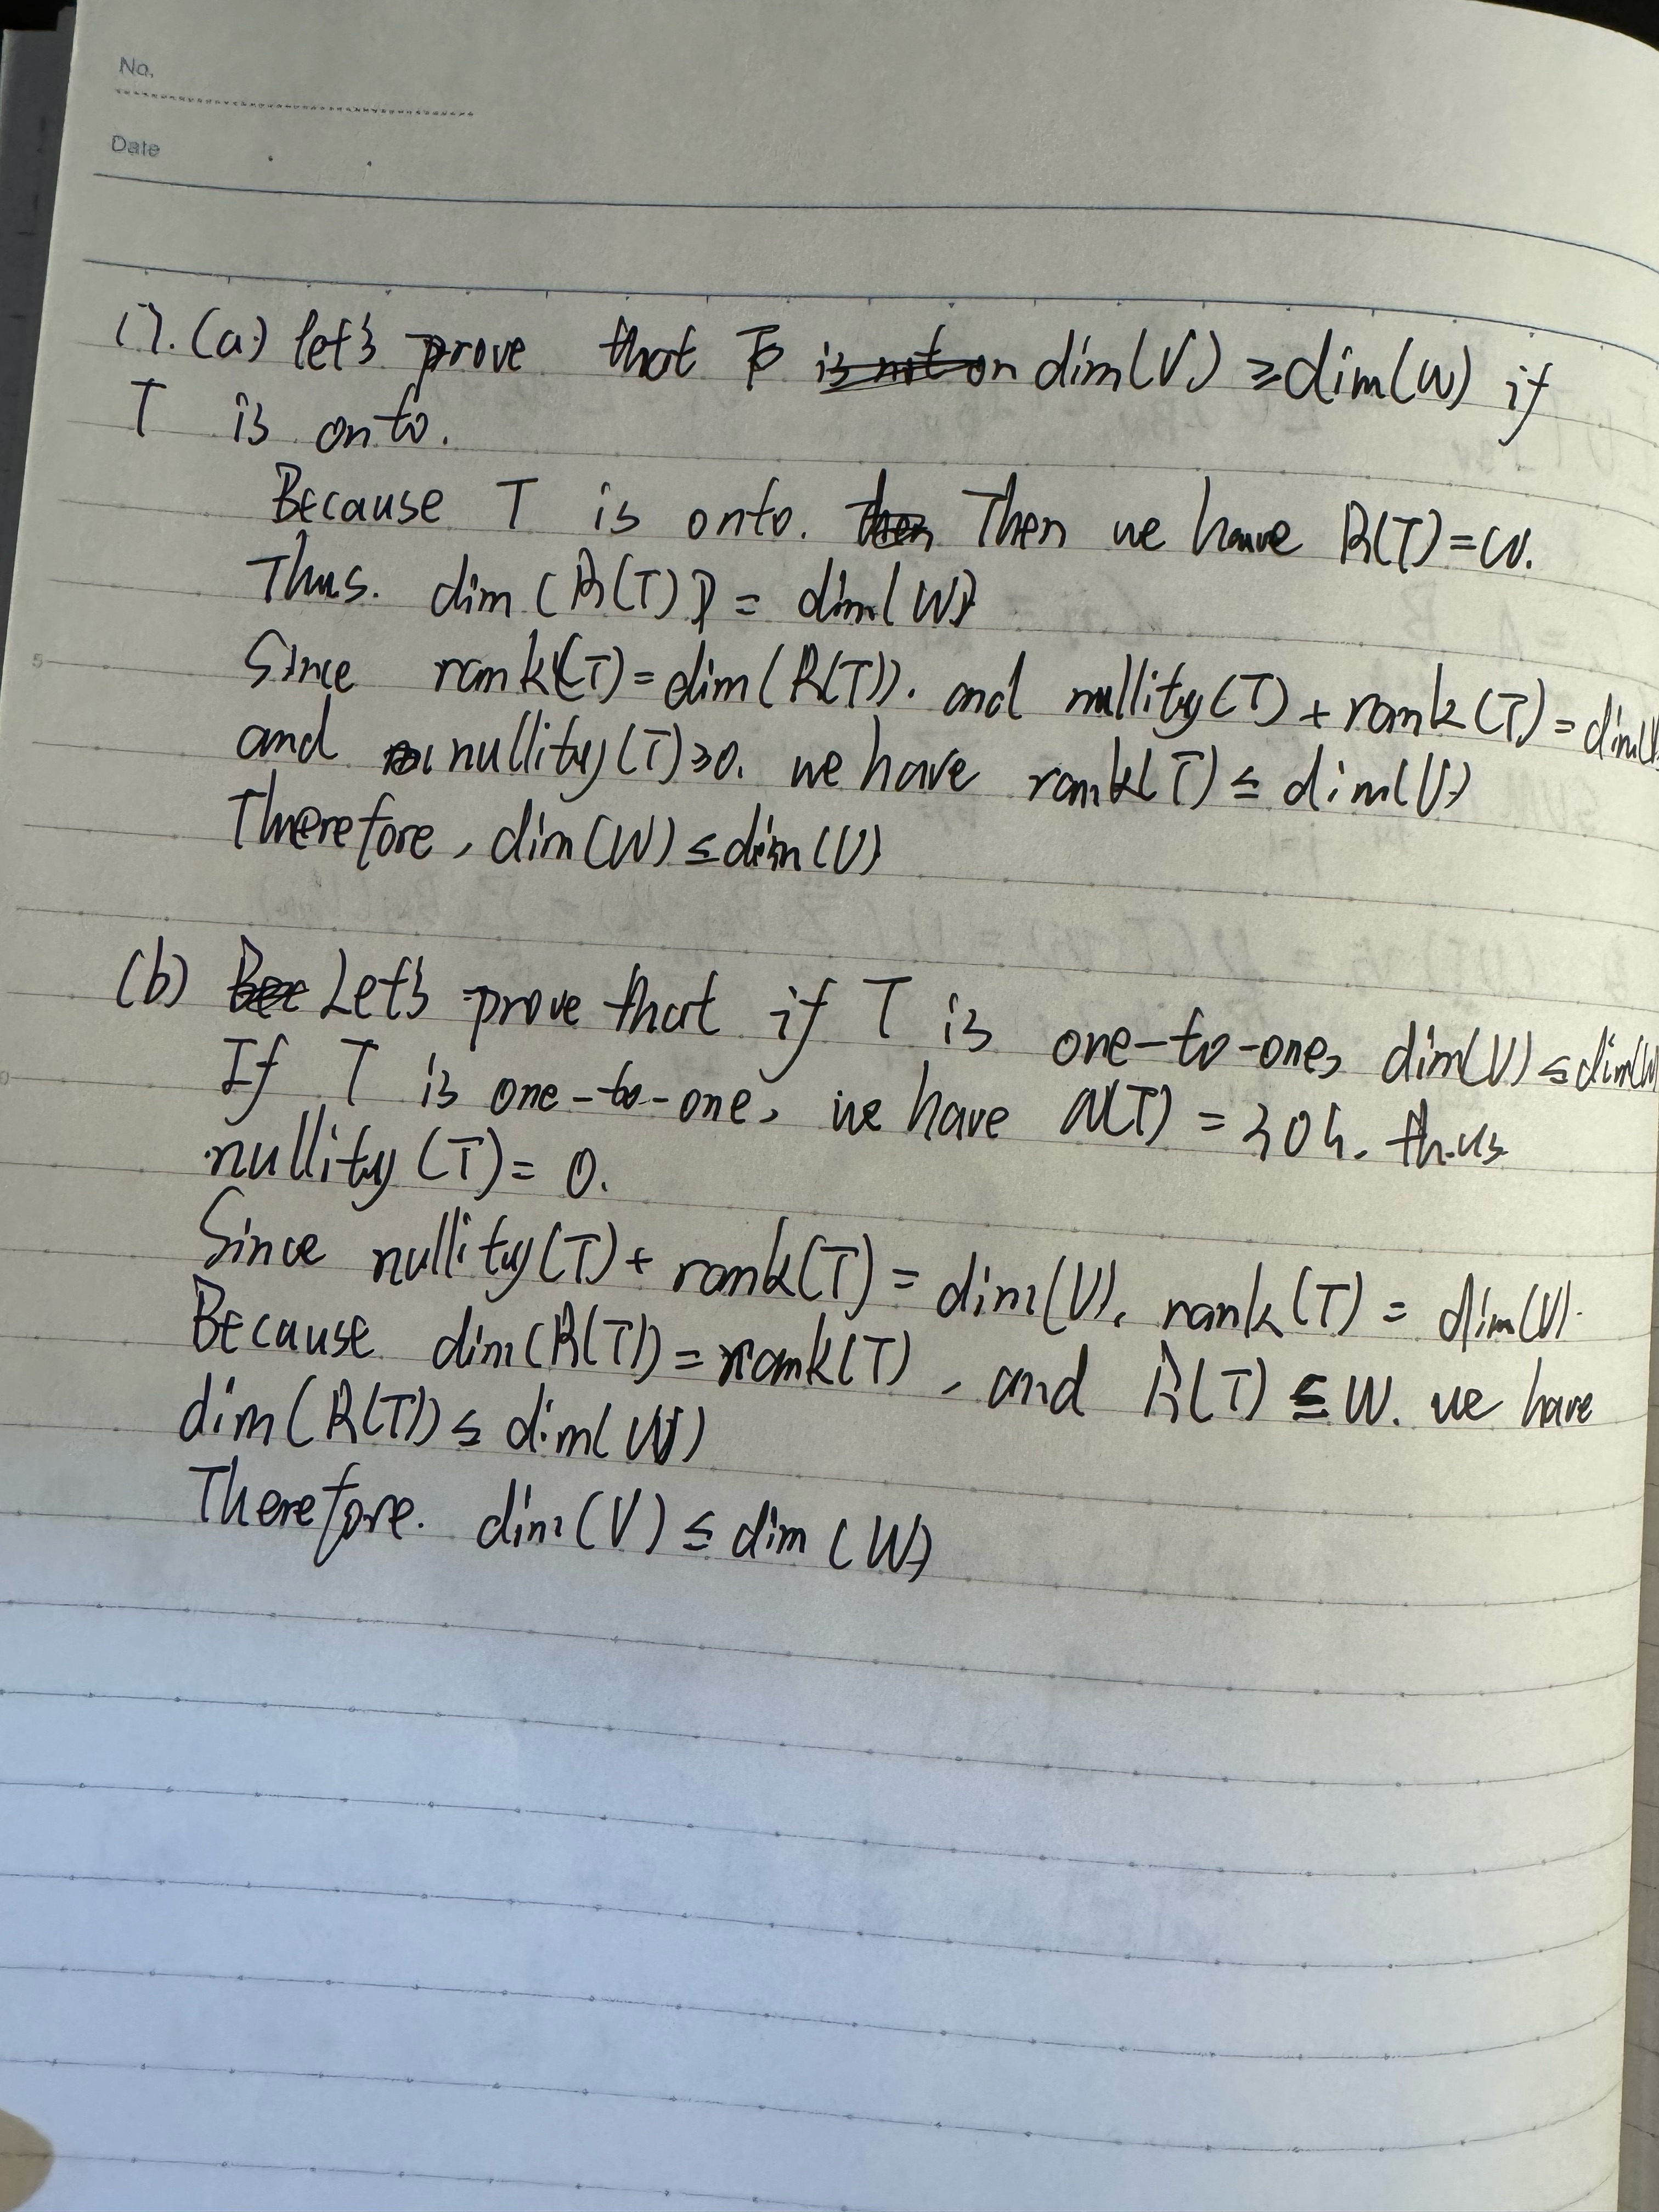 No.
Date
17. (a) let's prove that dim(V) ≥ dim(W) if
T is onto.
Because T is onto. Then we have R(T)=W.
Thus. dim (R(T)) = dim(W)
5
Since rank(T)=dim(R(T)). and nullity(T)+rank(T)=dim(V
and nullity(T)≥0. we have rank(T) ≤ dim(V)
Therefore, dim(W) ≤ dim(V)
(b) Let's prove that if T is one-to-one, dim(V) ≤ dim(W
If T is one-to-one, we have N(T) = {0}. thus
nullity(T)= 0.
Since nullity(T)+ rank(T) = dim(V). rank(T) = dim(V).
Because dim(R(T))=rank(T), and R(T) ⊆ W. we have
dim(R(T)) ≤ dim(W)
Therefore. dim(V) ≤ dim(W)